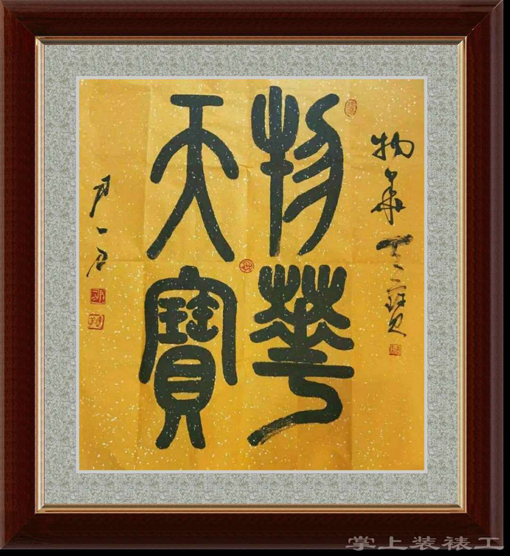 物華
天寶
物華天寶
掌上装裱工